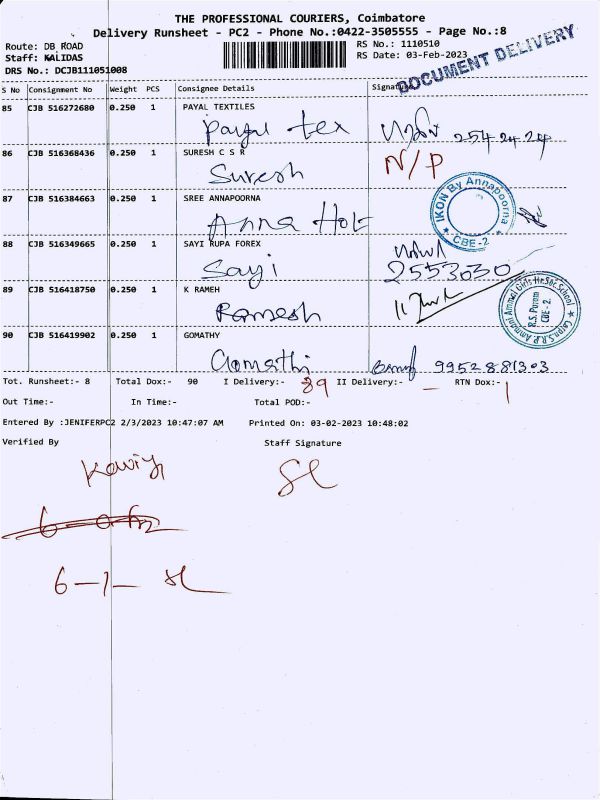 THE PROFESSIONAL COURIERS, Coimbatore
Delivery Runsheet - PC2 - Phone No.:0422-3505555 - Page No.:8
Route: DB ROAD
RS No.: 1110510
Staff: KALIDAS
RS Date: 03-Feb-2023
DRS No.: DCJB111051008
DOCUMENT DELIVERY
S No Consignment No Weight PCS Consignee Details Signature
85 CJB 516272680 0.250 1 PAYAL TEXTILES
Payal tex 2542424
86 CJB 516368436 0.250 1 SURESH C S R
Suresh N/P
87 CJB 516384663 0.250 1 SREE ANNAPOORNA
Anna Hot
IKON By Annapoorna
CBE-2
88 CJB 516349665 0.250 1 SAYI RUPA FOREX
Sayi 2553030
89 CJB 516418750 0.250 1 K RAMEH
Ramesh
R.S. Puram
CBE - 2.
90 CJB 516419902 0.250 1 GOMATHY
Gomathi 9952881303
Tot. Runsheet:- 8 Total Dox:- 90 I Delivery:- 89 II Delivery:- — RTN Dox:- 1
Out Time:- In Time:- Total POD:-
Entered By :JENIFERPC2 2/3/2023 10:47:07 AM Printed On: 03-02-2023 10:48:02
Verified By Staff Signature
6-1-